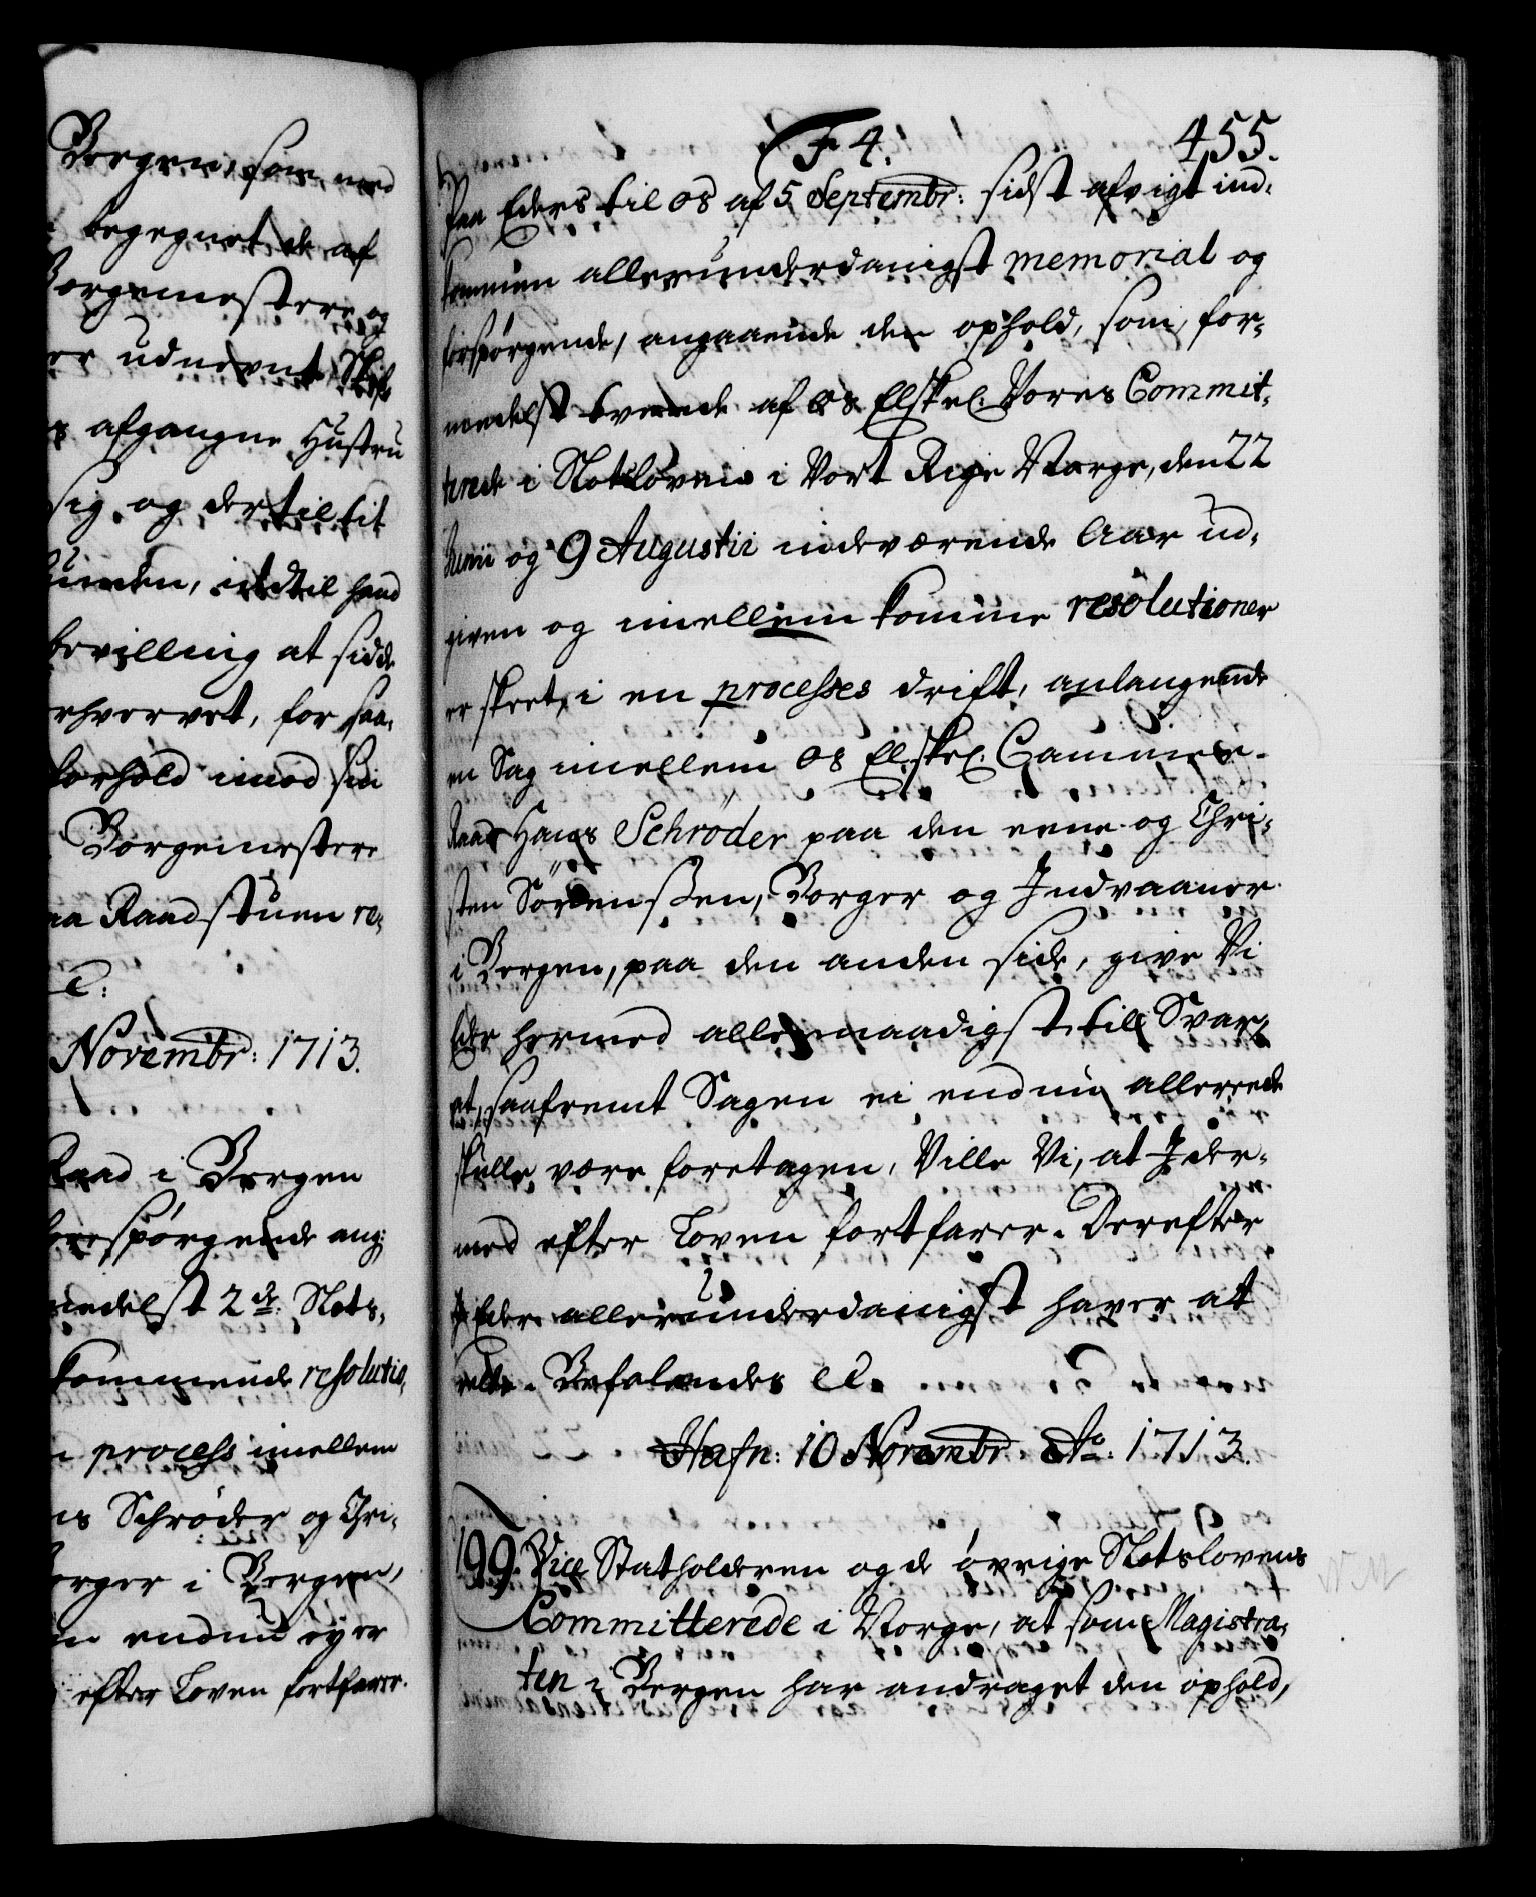 Borgen, som med
begegnet de af
Borgemestere og
er udnevnt Skif
s afgangne Hustru
sig og dertil tit
kunden, indtil hand
bevilling at sidde
erhvervet, for saa-
forhold imod sin
Borgemestere
aa Raadstuen re-
etc:
Novembr: 1713.
Raad i Bergen
forespørgende ang:
medelst 2de: Slots-
kommende resolutio-
n process imellem
ns Schrøder og Chri-
orger i Bergen,
endnu ey er
efter Loven fortfarer.
F 4. 455.
Paa Eders til os af 5 Septembr: sidst afvigt ind-
kommen allerunderdanigst memorial og
forspørgende, angaaende den ophold, som, for-
medelst tvende af os Elskel: Vores Commit-
terede i Slotsloven i Vort Rige Norge, den 22
Junii og 9 Augustii indeværende Aar ud-
given og imellem komne resolutioner
er skeet, i en processes drift, anlangende
en Sag imellem os Elskel: Cammer-
Raad Hans Schrøder paa den eene og Chri-
sten Sørenssen, Borger og Indvaaner
i Bergen, paa den anden side, give Vi
Eder hermed allernaadigst till Svar,
at, saafremt Sagen ei endnu allereede
skulle være foretagen, Ville Vi, at I der-
med efter Loven fortfarer. Derefter
I Eder allerunderdanigst haver at
rette. Befalendes etc.
Hafn: 10 Novembr: Ao: 1713.
199. Vice Statholderen og de øvrige Slotslovens
Committerede i Norge, at som Magistra-
ten i Bergen har andraget den ophold,